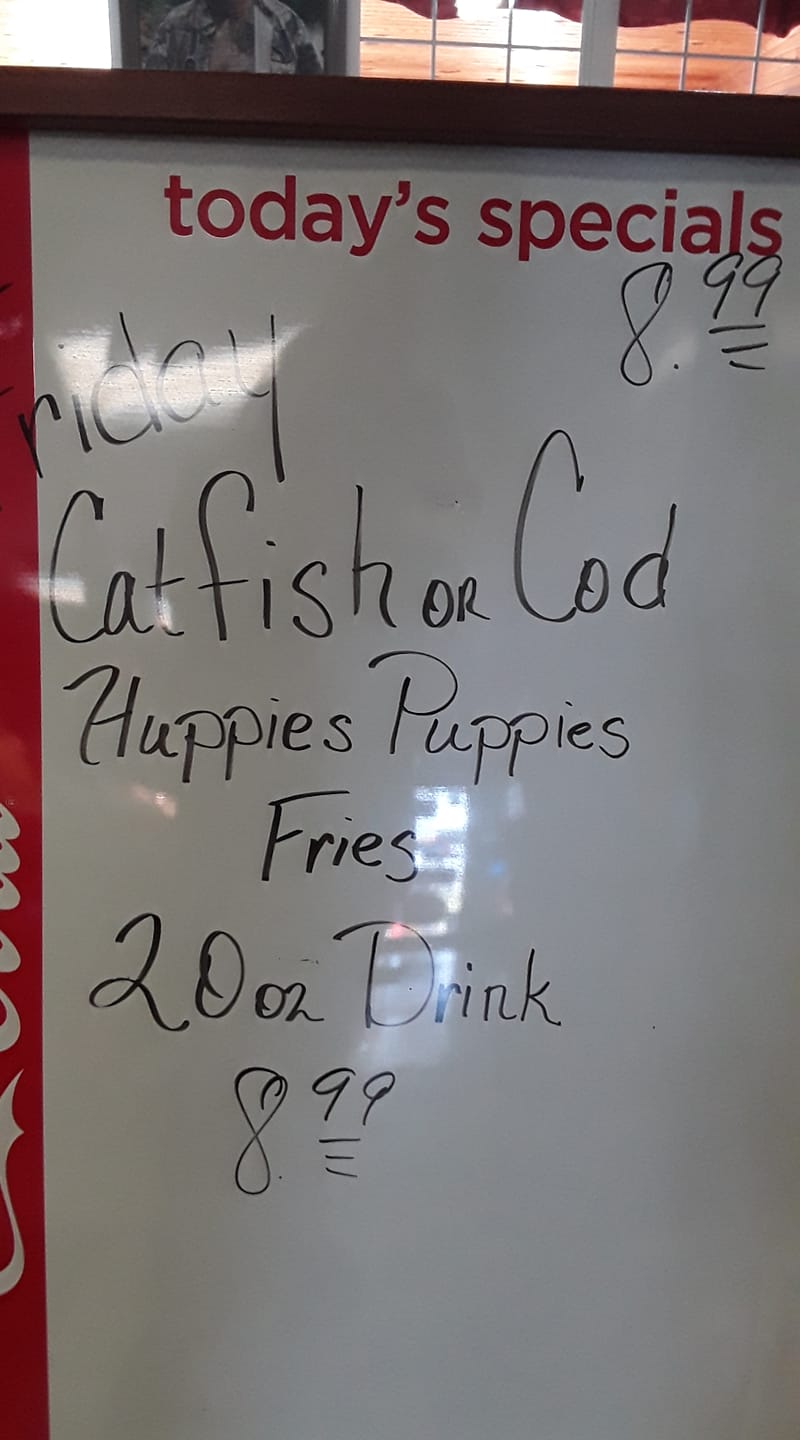 today's specials
8.99
Friday
Catfish OR Cod
Huppies Puppies
Fries
20 oz Drink
8.99